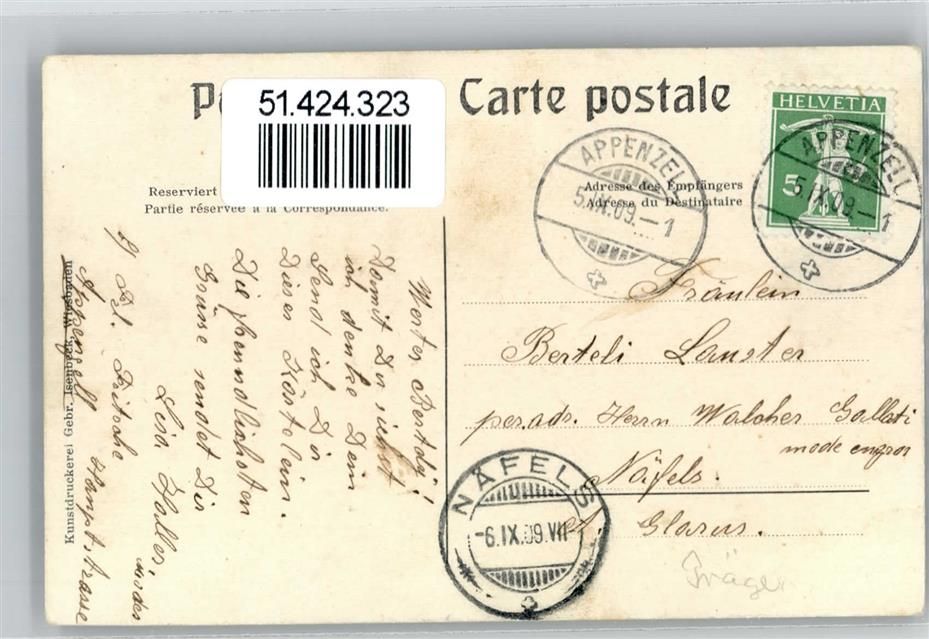 Carte postale
51.424.323
HELVETIA
5
APPENZELL
5.IX.09.-1
APPENZELL
5.IX.09.-1
Reserviert
Partie réservée à la Correspondance.
Adresse des Empfängers
Adresse du Destinataire
Kunstdruckerei Gebr. Isenbeck, Wiesbaden
Werter Bertdy!
Damit Du siehst
ich denke Dein
Send ich Dir
Dieses Kärtelein.
Die freundlichsten
Grüsse sendet Dir
Lisa Holler,
modes
Hauptstrasse
Appenzell
Fräulein
Berteli Lauster
per adr. Herrn Walcher Gallati
mode engros
Näfels.
Glarus.
NÄFELS
-6.IX.09.VII-